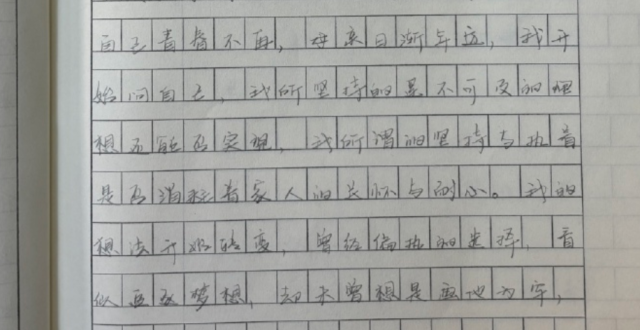 自己青春不再，母亲日渐年迈，我开
始问自己，我所坚持的是不可及的理
想还能否实现，我所谓的坚持与执着
是否消耗着家人的关怀与耐心。我的
想法开始转变，曾经偏执的选择，看
似追逐梦想，却未曾想是画地为牢，